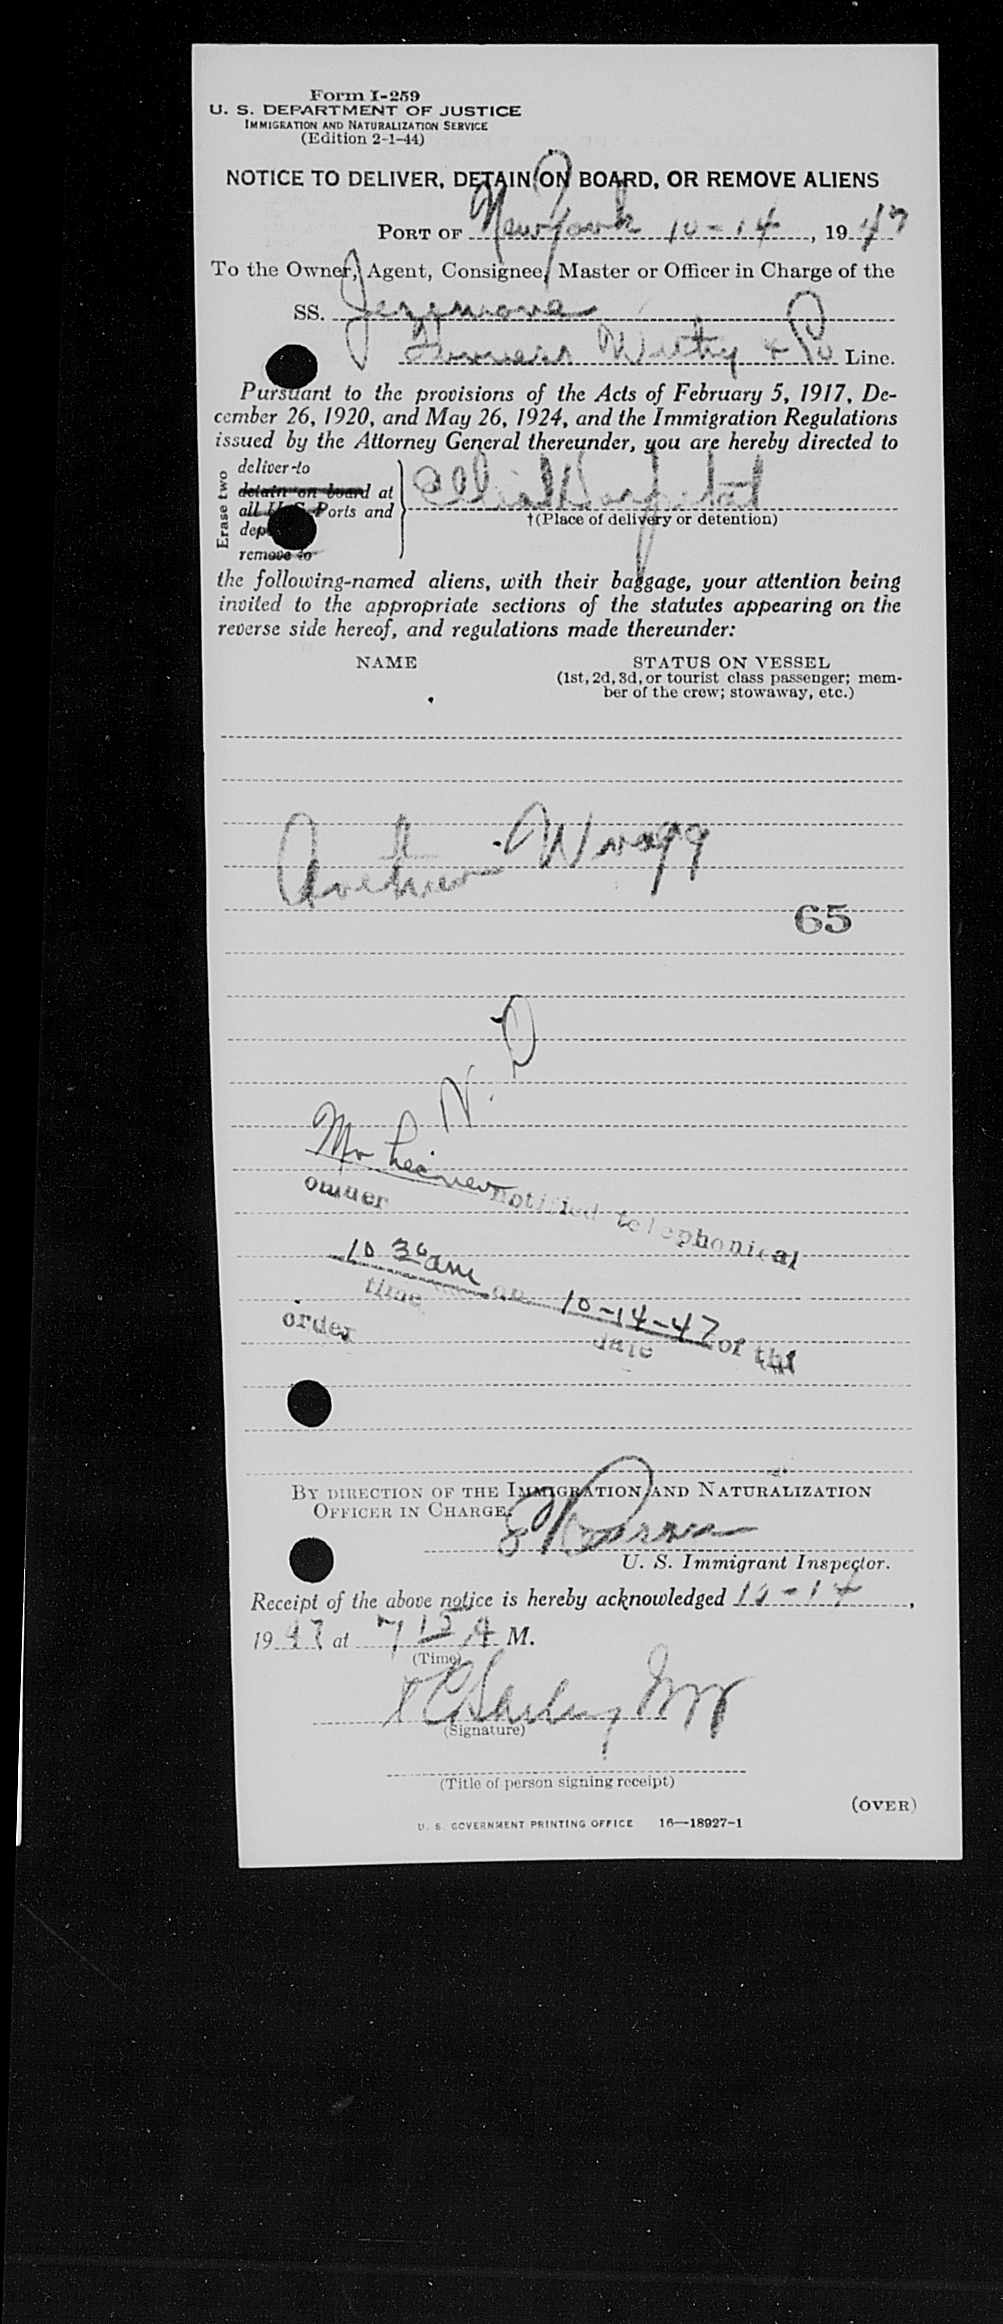 Form I-259
U. S. DEPARTMENT OF JUSTICE
IMMIGRATION AND NATURALIZATION SERVICE
(Edition 2-1-44)
NOTICE TO DELIVER, DETAIN ON BOARD, OR REMOVE ALIENS
PORT OF New York 10-14, 1947
To the Owner, Agent, Consignee, Master or Officer in Charge of the
SS.
Furness Withy & Co Line.
Pursuant to the provisions of the Acts of February 5, 1917, De-
cember 26, 1920, and May 26, 1924, and the Immigration Regulations
issued by the Attorney General thereunder, you are hereby directed to
Erase two
deliver to
detain on board at
all U. S. Ports and
remove to
Hospital
†(Place of delivery or detention)
the following-named aliens, with their baggage, your attention being
invited to the appropriate sections of the statutes appearing on the
reverse side hereof, and regulations made thereunder:
NAME STATUS ON VESSEL
(1st, 2d, 3d, or tourist class passenger; mem-
ber of the crew; stowaway, etc.)
Arthur Wragg
65
N. D
Mr notified telephonical
owner
10 30 am on 10-14-47 of the
time date
order
BY DIRECTION OF THE IMMIGRATION AND NATURALIZATION
OFFICER IN CHARGE:
U. S. Immigrant Inspector.
Receipt of the above notice is hereby acknowledged 10-14,
1947 at 7 15 A M.
(Time)
(Signature)
(Title of person signing receipt)
(OVER)
U. S. GOVERNMENT PRINTING OFFICE 16—18927-1